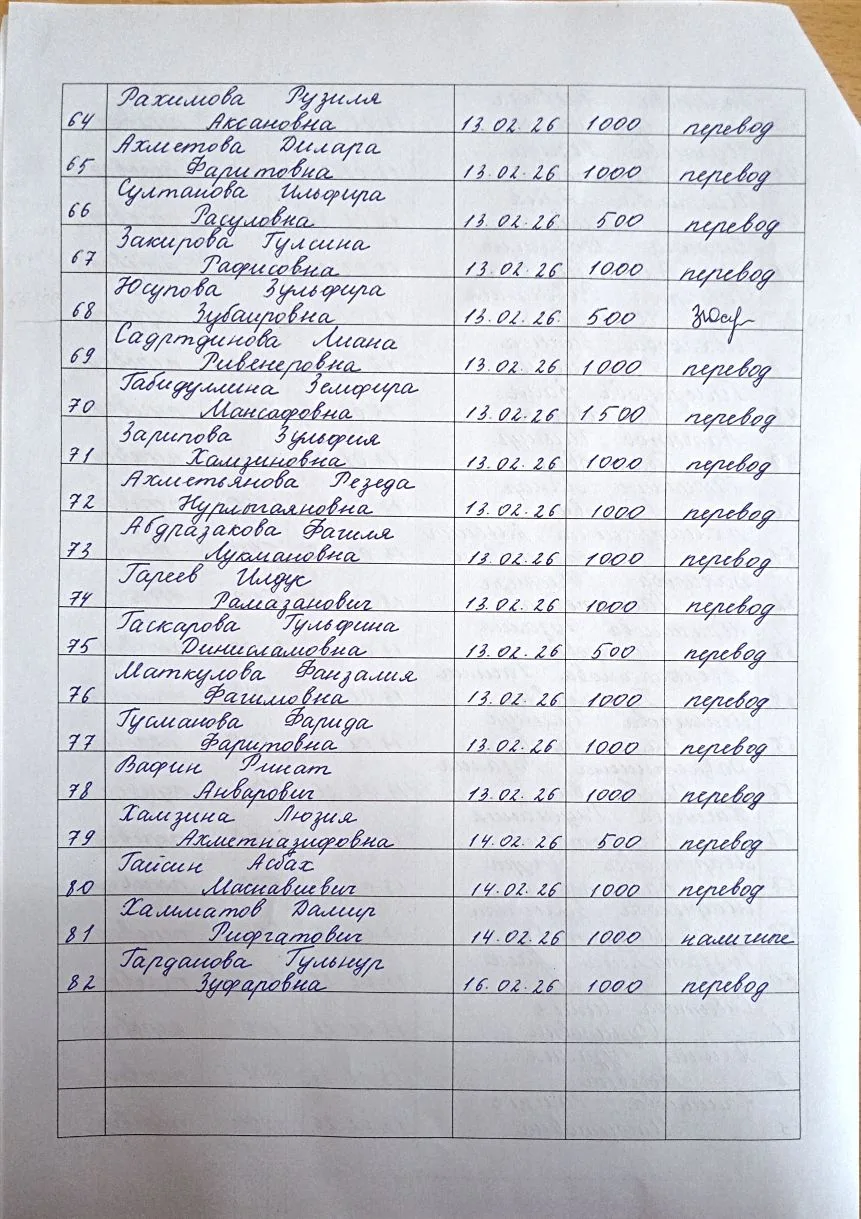 Рахимова Рузиля
64 Аксановна 13.02.26 1000 перевод
Ахметова Дилара
65 Фаритовна 13.02.26 1000 перевод
Султанова Ильфира
66 Расуловна 13.02.26 500 перевод
Закирова Гулсина
67 Рафисовна 13.02.26 1000 перевод
Юсупова Зульфира
68 Зубаировна 13.02.26. 500
Садртдинова Лиана
69 Ривенеровна 13.02.26 1000 перевод
Габидуллина Земфира
70 Мансафовна 13.02.26 1500 перевод
Зарипова Зульфия
71 Хамзиновна 13.02.26 1000 перевод
Ахметьянова Резеда
72 Нурлыгаяновна 13.02.26 1000 перевод
Абдразакова Фагиля
73 Лукмановна 13.02.26 1000 перевод
Гареев Илдус
74 Рамазанович 13.02.26 1000 перевод
Гаскарова Гульфина
75 Динисламовна 13.02.26 500 перевод
Маткулова Фанзалия
76 Фагимовна 13.02.26 1000 перевод
Гусманова Фарида
77 Фаритовна 13.02.26 1000 перевод
Вафин Ринат
78 Анварович 13.02.26 1000 перевод
Хамзина Люзия
79 Ахметназифовна 14.02.26 500 перевод
Гайсин Асбах
80 Маснавиевич 14.02.26 1000 перевод
Хамматов Дамир
81 Рифгатович 14.02.26 1000 наличные
Гарданова Гульнур
82 Зуфаровна 16.02.26 1000 перевод